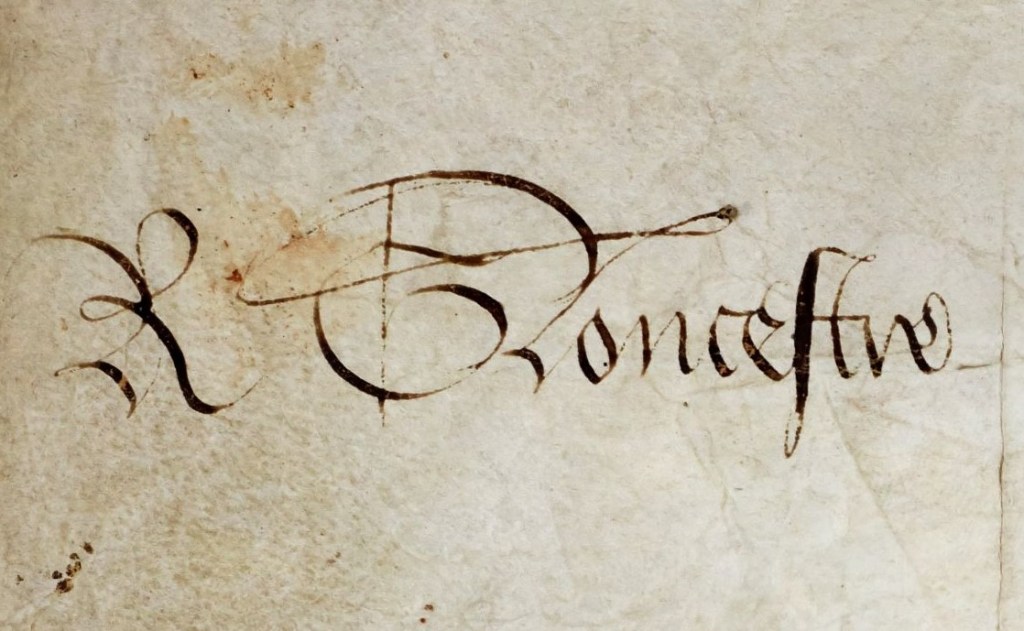 R Gloucestre